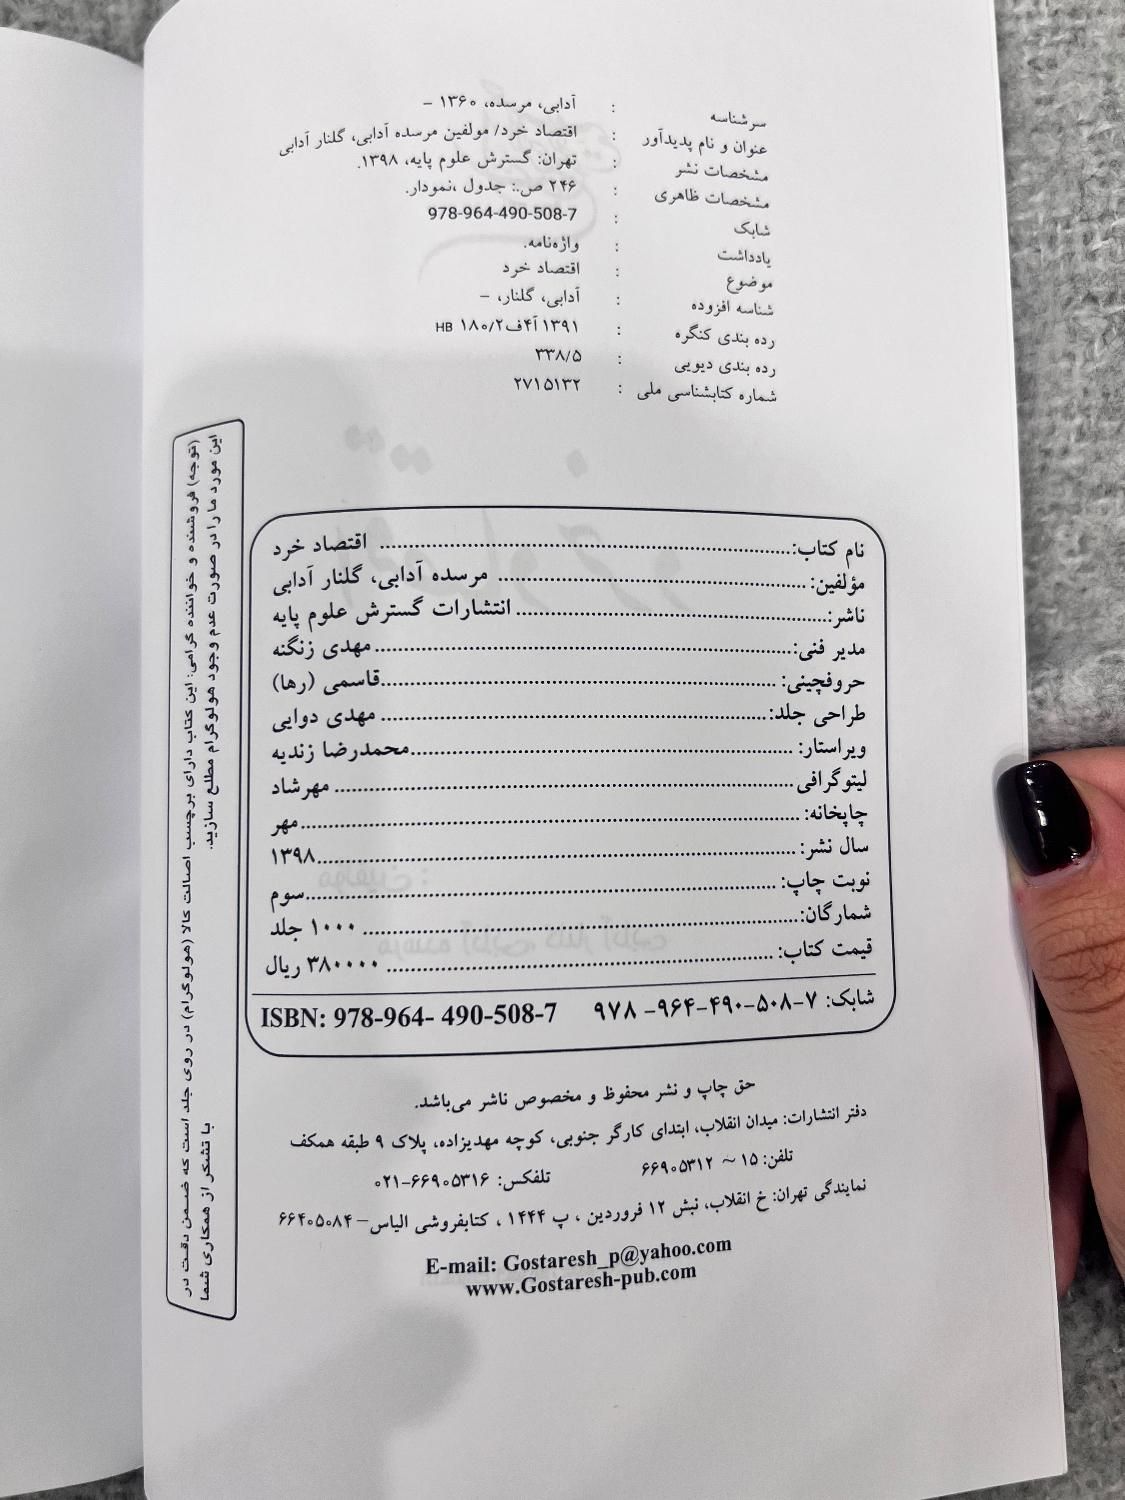 سرشناسه : آدابی، مرسده، ۱۳۶۰ –
عنوان و نام پدیدآور : اقتصاد خرد/ مولفین مرسده آدابی، گلنار آدابی
مشخصات نشر : تهران: گسترش علوم پایه، ۱۳۹۸.
مشخصات ظاهری : ۲۴۶ ص.: جدول ،نمودار.
شابک : 978-964-490-508-7
یادداشت : واژه‌نامه.
موضوع : اقتصاد خرد
شناسه افزوده : آدابی، گلنار، –
رده بندی کنگره : ۱۳۹۱ ۴آ۲ف/HB ۱۸۰
رده بندی دیویی : ۳۳۸/۵
شماره کتابشناسی ملی : ۲۷۱۵۱۳۲
نام کتاب: اقتصاد خرد
مؤلفین: مرسده آدابی، گلنار آدابی
ناشر: انتشارات گسترش علوم پایه
مدیر فنی: مهدی زنگنه
حروفچینی: قاسمی (رها)
طراحی جلد: مهدی دوایی
ویراستار: محمدرضا زندیه
لیتوگرافی مهرشاد
چاپخانه: مهر
سال نشر: ۱۳۹۸
نوبت چاپ: سوم
شمارگان: ۱۰۰۰ جلد
قیمت کتاب: ۳۸۰۰۰۰ ریال
شابک: ۷–۵۰۸–۴۹۰–۹۶۴– ۹۷۸ ISBN: 978-964- 490-508-7
حق چاپ و نشر محفوظ و مخصوص ناشر می‌باشد.
دفتر انتشارات: میدان انقلاب، ابتدای کارگر جنوبی، کوچه مهدیزاده، پلاک ۹ طبقه همکف
تلفن: ۱۵ ~ ۶۶۹۰۵۳۱۲ تلفکس: ۶۶۹۰۵۳۱۶–۰۲۱
نمایندگی تهران: خ انقلاب، نبش ۱۲ فروردین ، پ ۱۴۴۴ ، کتابفروشی الیاس– ۶۶۴۰۵۰۸۴
E-mail: Gostaresh_p@yahoo.com
www.Gostaresh-pub.com
(توجه) فروشنده و خواننده گرامی: این کتاب دارای برچسب اصالت کالا (هولوگرام) در روی جلد است که ضمن دقت در
این مورد ما را در صورت عدم وجود هولوگرام مطلع سازید. با تشکر از همکاری شما